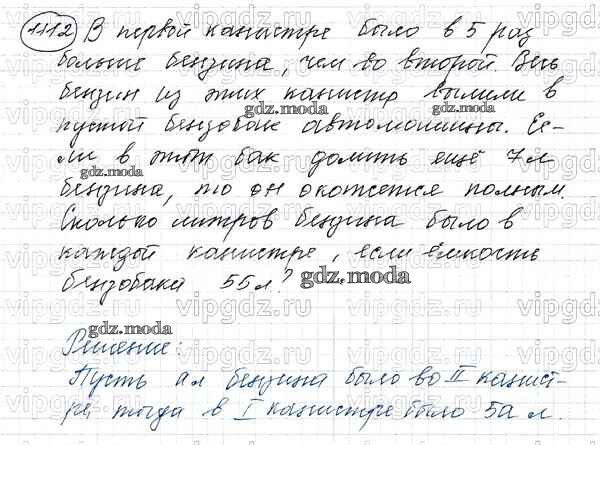 1112 В первой канистре было в 5 раз
больше бензина, чем во второй. Весь
бензин из этих канистр вылили в
пустой бензобак автомашины. Ес-
ли в этот бак долить ещё 7 л
бензина, то он окажется полным.
Сколько литров бензина было в
каждой канистре, если ёмкость
бензобака 55 л?
Решение:
Пусть а л бензина было во II канист-
ре, тогда в I канистре было 5а л.